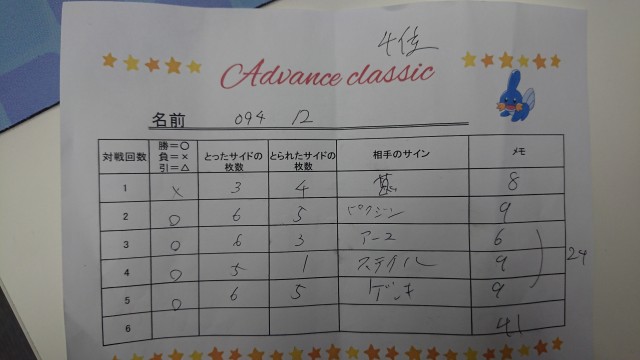 4位
Advance classic
名前 094 12
対戦回数 勝=○ 負=× 引=△ とったサイドの枚数 とられたサイドの枚数 相手のサイン メモ
1 × 3 4 8
2 ○ 6 5 ピクシン 9
3 ○ 6 3 アース 6
4 ○ 5 1 ステイル 9
5 ○ 6 5 ゲンキ 9
24
6 41